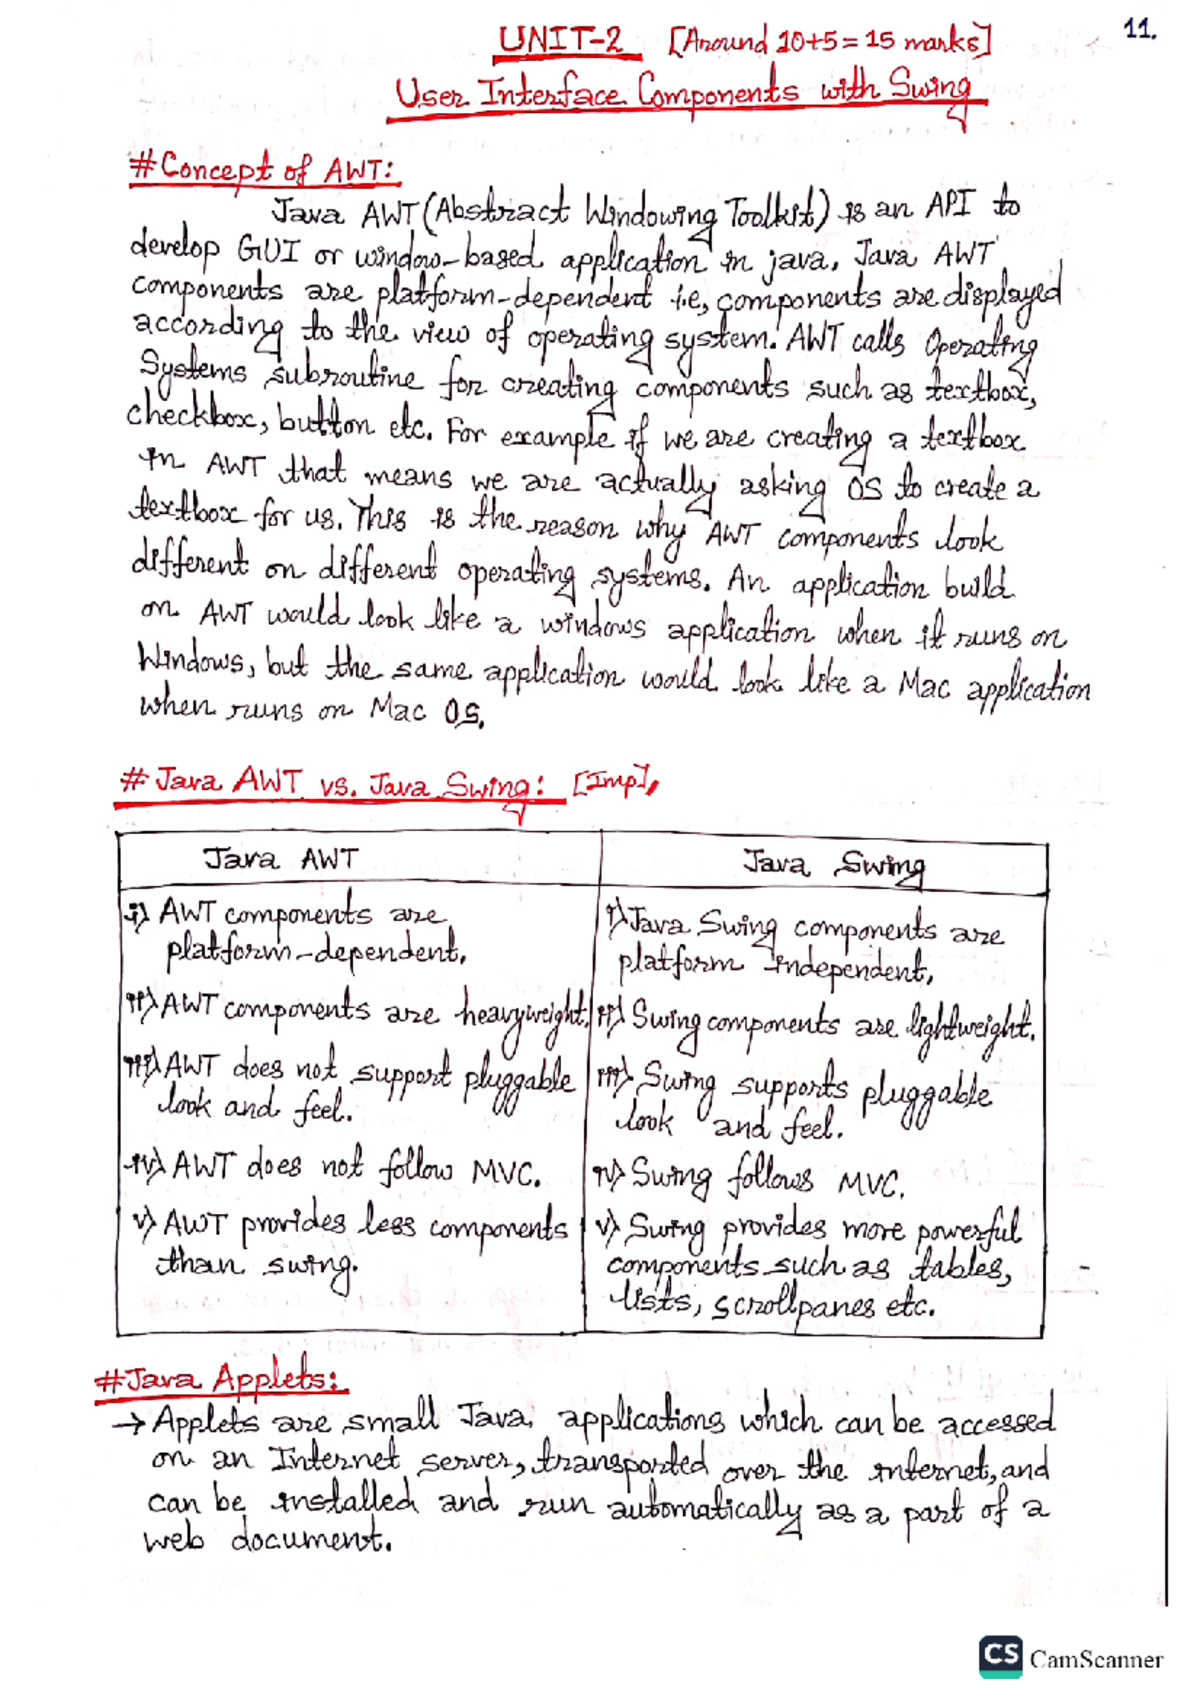 11.
UNIT-2 [Around 10+5=15 marks]
User Interface Components with Swing
#Concept of AWT:
Java AWT (Abstract Windowing Toolkit) is an API to
develop GUI or window-based application in java. Java AWT
components are platform-dependent i.e, components are displayed
according to the view of operating system. AWT calls Operating
Systems subroutine for creating components such as textbox,
checkbox, button etc. For example if we are creating a textbox
in AWT that means we are actually asking OS to create a
textbox for us. This is the reason why AWT components look
different on different operating systems. An application build
on AWT would look like a windows application when it runs on
Windows, but the same application would look like a Mac application
when runs on Mac OS.
# Java AWT vs. Java Swing: [Imp],
Java AWT
Java Swing
i) AWT components are
platform-dependent.
i) Java Swing components are
platform independent.
ii) AWT components are heavyweight.
ii) Swing components are lightweight.
iii) AWT does not support pluggable
look and feel.
iii) Swing supports pluggable
look and feel.
iv) AWT does not follow MVC.
iv) Swing follows MVC.
v) AWT provides less components
than swing.
v) Swing provides more powerful
components such as tables,
lists, scrollpanes etc.
#Java Applets:
→ Applets are small Java applications which can be accessed
on an Internet server, transported over the internet, and
can be installed and run automatically as a part of a
web document.
CS CamScanner